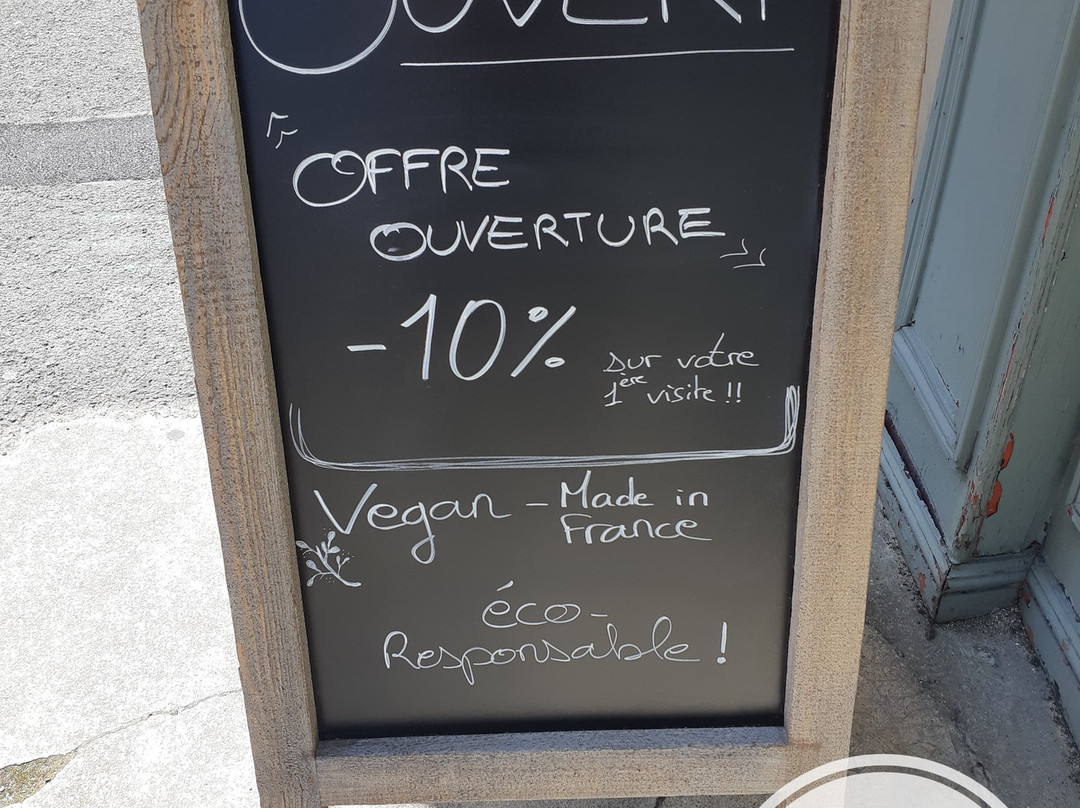 OUVERT
« OFFRE
OUVERTURE »
-10%
sur votre
1ère visite !!
Vegan - Made in
France
éco-
Responsable !